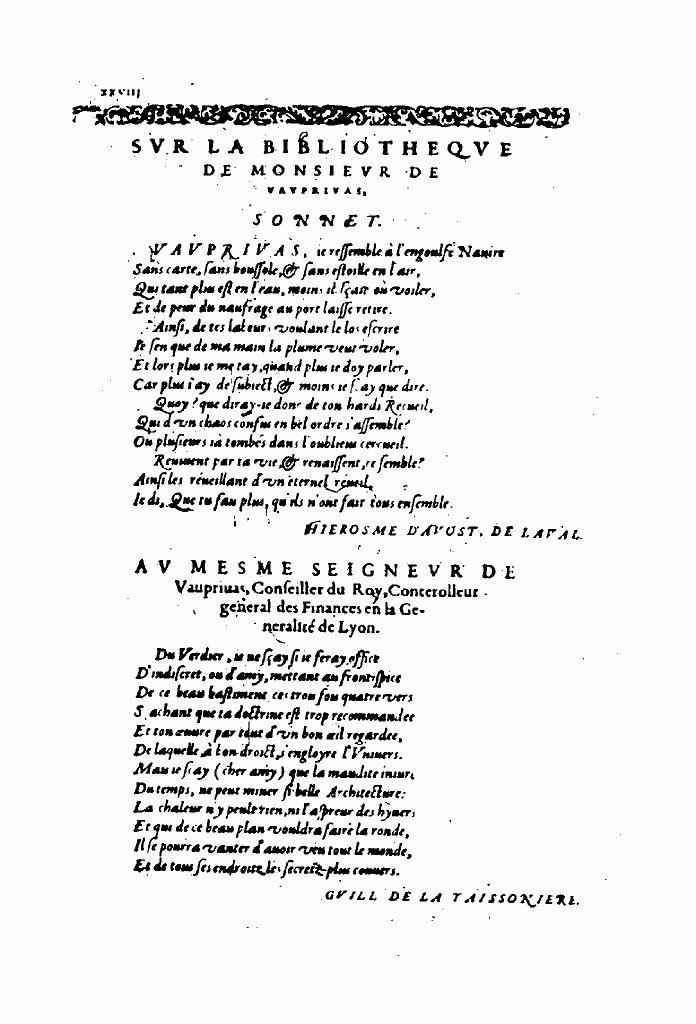 xxviij
SVR LA BIBLIOTHEQVE
DE MONSIEVR DE
VAVPRIVAS,
SONNET.
VAVPRIVAS, ie ressemble à l'engoulfé Nauire
Sans carte, sans boussole, & sans estoille en l'air,
Qui tant plus est en l'eau, moins il sçait où voiler,
Et de peur du naufrage au port laisse retire.
Ainsi, de tes labeurs voulant le los escrire
Ie sen que de ma main la plume veut voler,
Et lors plus ie me tay, quand plus ie doy parler,
Car plus i'ay de subiect, & moins ie sçay que dire.
Quoy? que diray-ie donc de ton hardi Recueil,
Qui d'vn chaos confus en bel ordre s'assemble?
Ou plusieurs ia tombés dans l'oublieux cercueil.
Reuiuent par ta vie, & renaissent, ce semble?
Ainsi les réueillant d'vn eternel réueil,
Ie di, Que tu fau plus, qu'ils n'ont fait tous ensemble.
HIEROSME D'AVOST, DE LAVAL.
AV MESME SEIGNEVR DE
Vaupriuas, Conseiller du Roy, Conterolleur
general des Finances en la Ge-
neralité de Lyon.
Du Verdier, ie ne sçay si ie feray office
D'indiscret, ou d'amy, mettant au frontispice
De ce beau bastiment ces trou sou quatre vers
Sachant que ta doctrine est trop recommandee
Et ton œuure par tout d'vn bon œil regardee,
De laquelle, à bon droict, s'engloyre l'Vniuers.
Mau ie sçay (cher amy) que la maudite iniure
Du temps, ne peut miner si belle Architecture:
La chaleur n'y peult rien, ni l'aspreur des hyuers
Et qui de ce beau plan vouldra faire la ronde,
Il se pourra vanter d'auoir veu tout le monde,
Et de tous ses endroitz les secretz plus couuers.
GVILL DE LA TAISSONIERE.